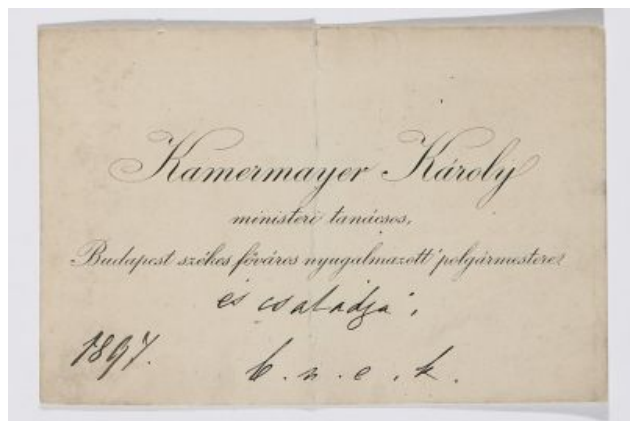 Kamermayer Károly
ministeri tanácsos,
Budapest székes főváros nyugalmazott polgármestere
és családja,
1897.
b. n. e. k.